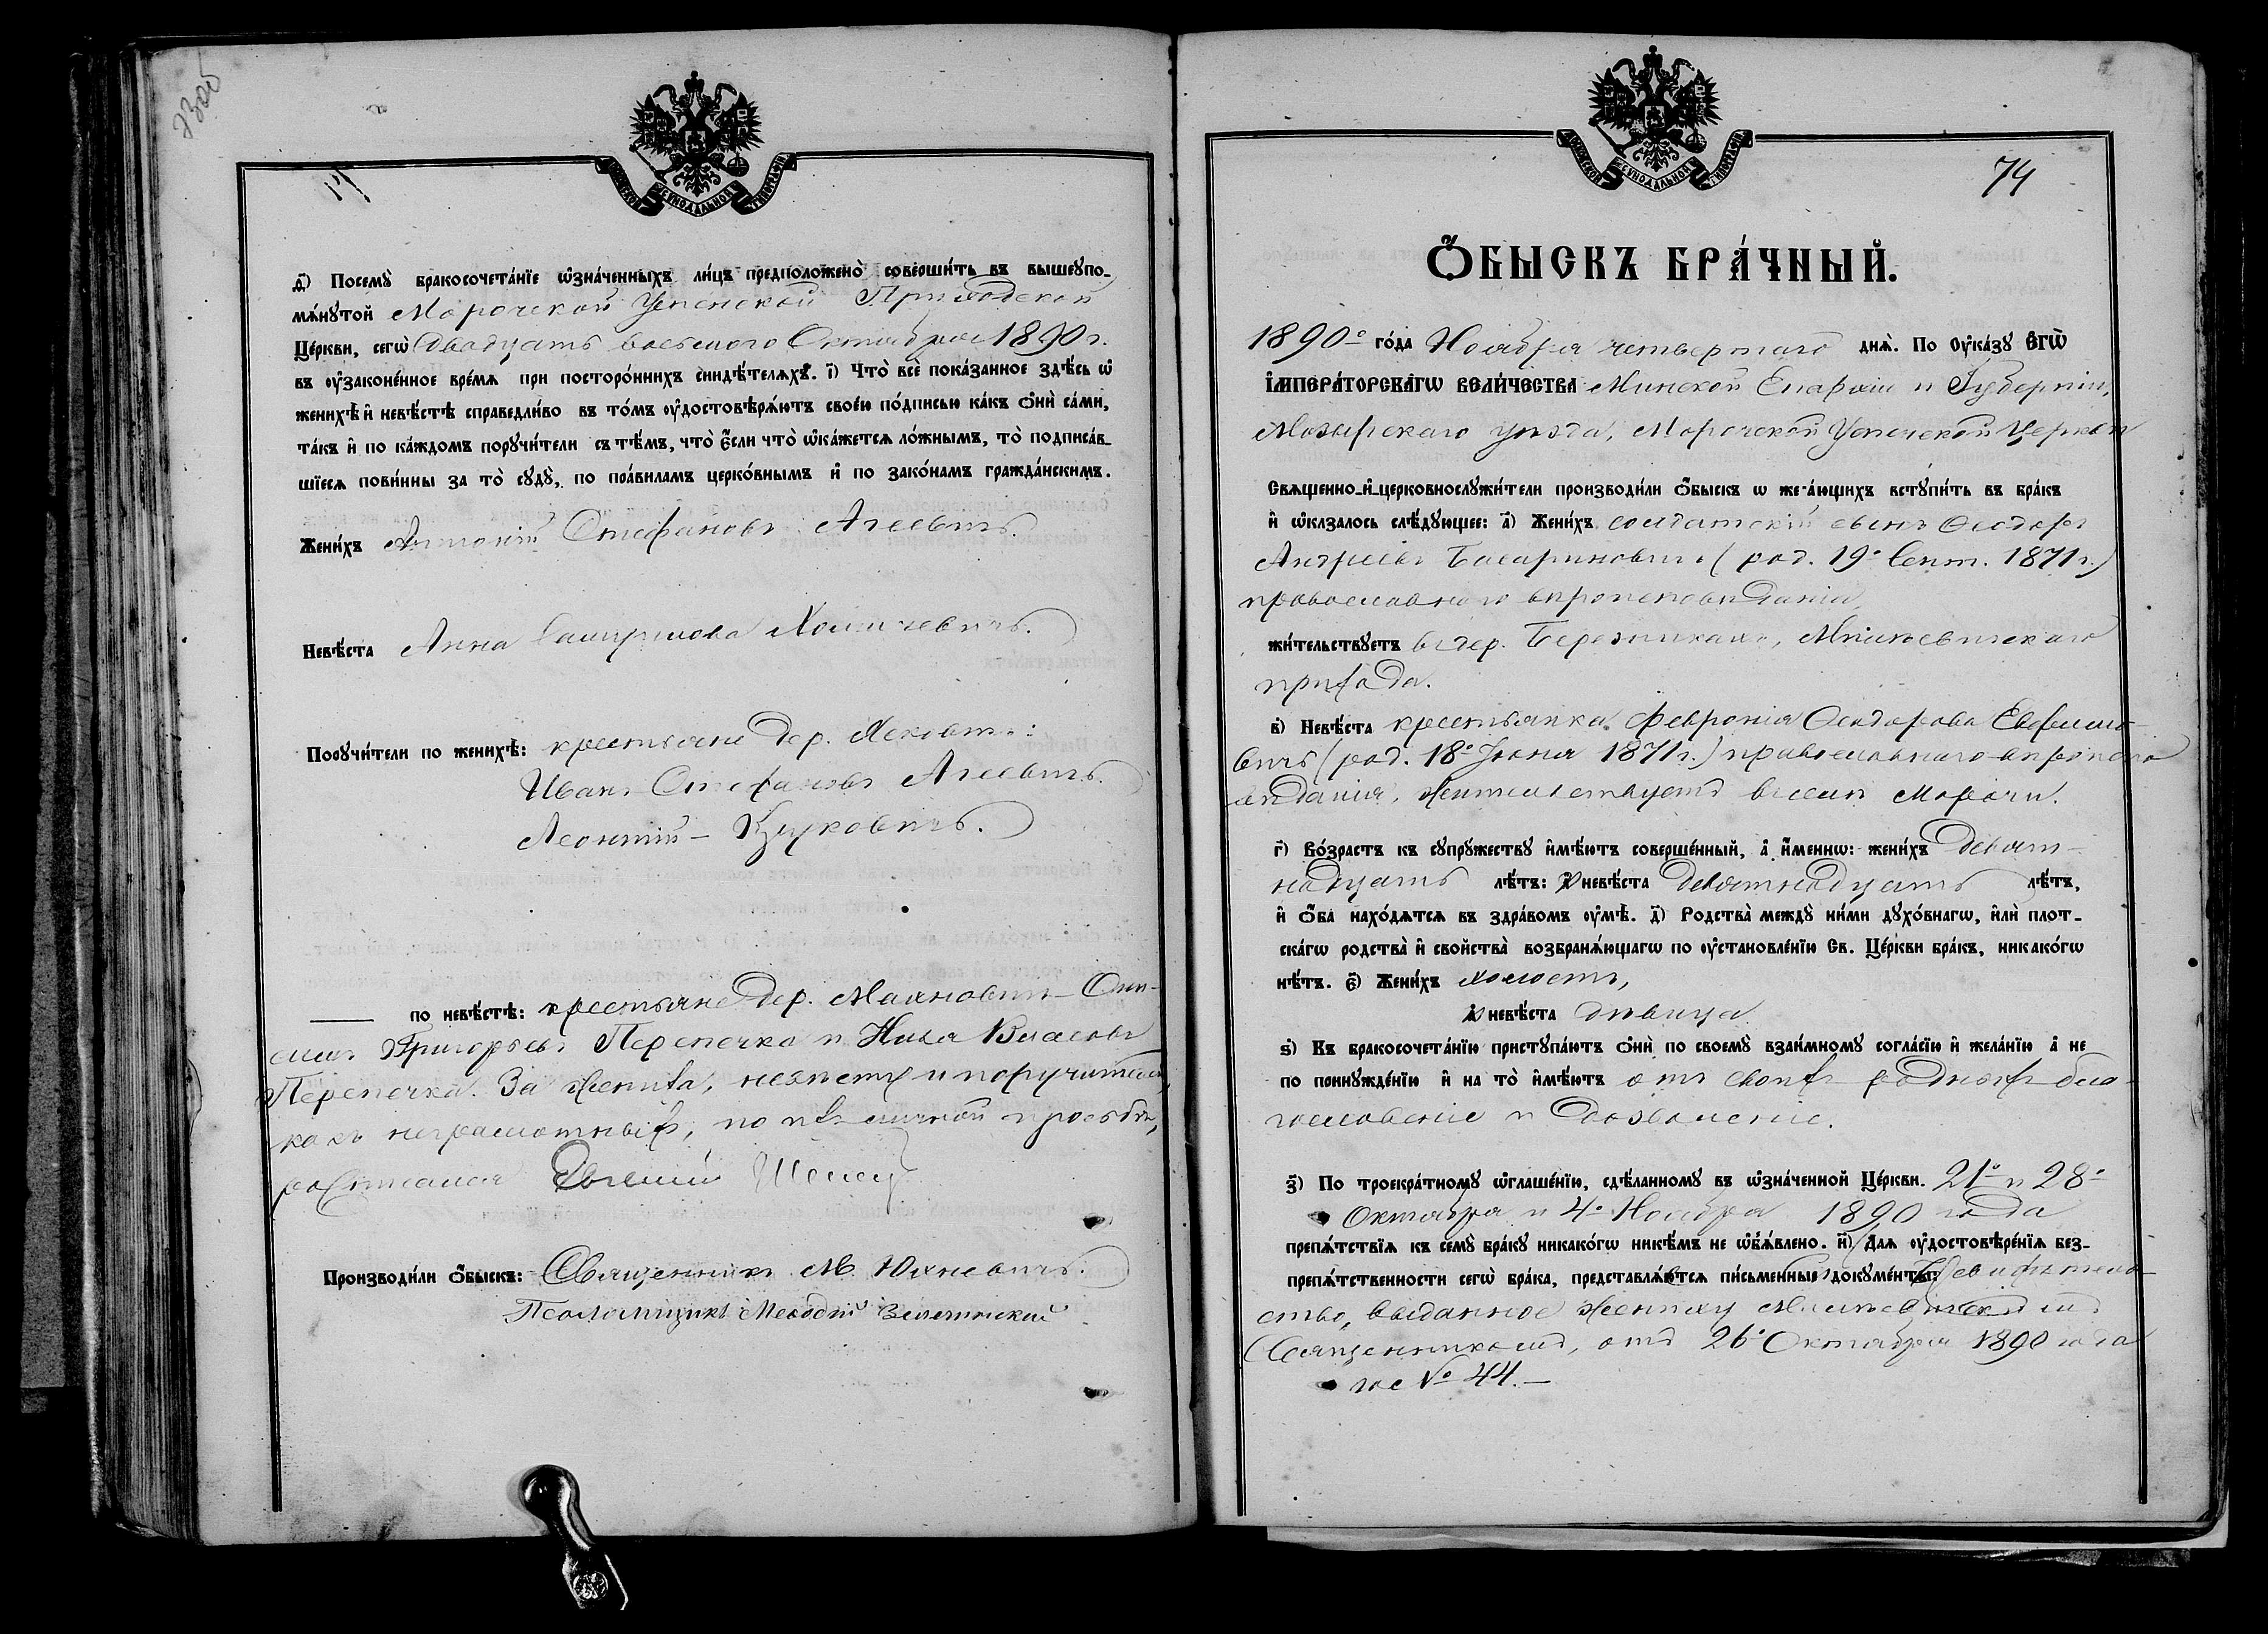 73об
Синодальной
д҃) Посемꙋ̀ бракосочета́нїе ѡ҆зна́ченныхъ ли́цъ предположено̀ соверши́ть въ вышеꙋпо-
мѧ́нꙋтой Морочской Успенской Приходской
Це́ркви, сегѡ̀ двадцать восьмого Октября 1890 г.
въ ᲂу҆зако́ненное вре́мѧ при посторо́ннихъ свидѣ́телѧхъ. і҃) Что̀ всѐ пока́занное здѣ́сь ѡ҆
женихѣ̀ и҆ невѣ́стѣ справедли́во въ то́мъ ᲂу҆достовѣрѧ́ютъ свое́ю по́дписью ка́къ ѻ҆нѝ са́ми,
та́къ и҆ по ка́ждомъ порꙋчи́тели съ тѣ́мъ, что̀ є҆́сли что̀ ѡ҆ка́жетсѧ ло́жнымъ, то̀ подписа́в-
шїесѧ пови́нны за то̀ сꙋдꙋ̀, по пра́виламъ церко́внымъ и҆ по зако́намъ гражда́нскимъ.
Жени́хъ Антоній Стефановъ Агеевичъ.
Невѣ́ста Анна
Порꙋчи́тели по женихѣ̀: крестьяне дер.
Иванъ Стефановъ Агеевичъ.
Леонтій
по невѣ́стѣ: крестьяне дер. Махновичъ Они-
симъ Григорьевъ Перепечка и Власовъ
Перепечка. За жениха, невѣсту и поручителей,
какъ неграмотныхъ, по ихъ личной просьбѣ,
росписался Евгеній
Производи́ли ѻ҆́быскъ: Священникъ М. Юхневичъ.
Псаломщикъ Меѳодій
Синодальной
74
Ѻ҆́БЫСКЪ БРА́ЧНЫЙ.
1890го го́да Ноября четвертаго днѧ̀. По ᲂу҆ка́зꙋ Є҆ГѠ̀
І҆МПЕРА́ТОРСКАГѠ ВЕЛИ́ЧЕСТВА Минской Епархіи и Губерніи,
Мозырскаго уѣзда, Морочской Успенской Церкви
Свѧщенно-и҆-церковнослꙋжи́тели производи́ли ѻ҆́быскъ ѡ҆ жела́ющихъ встꙋпи́ть въ бра́къ
и҆ ѡ҆казалось слѣ́дꙋющее: а҃) Жени́хъ солдатскій сынъ Ѳеодоръ
Андреевъ Басариновичъ (род. 19го Сент. 1871 г.)
православнаго вѣроисповѣданія,
жи́тельствꙋетъ въ дер. Березникахъ,
прихода.
в҃) Невѣ́ста крестьянка Февронія Ѳеодорова Евфимо-
вичъ (род. 18го Іюня 1871 г.) православнаго вѣроиспо-
вѣданія, жительствуетъ въ селѣ Морочи.
г҃) Во́зрастъ къ сꙋпрꙋ́жествꙋ и҆мѣ́ютъ соверше́нный, а҆ и҆́меннѡ: жени́хъ девят-
надцать лѣ́тъ: а҆ невѣ́ста девятнадцать лѣ́тъ,
и҆ ѻ҆́ба нахо́дѧтсѧ въ здра́вомъ ᲂу҆мѣ̀. д҃) Родства̀ междꙋ̀ ни́ми дꙋхо́внагѡ, и҆лѝ плот-
ска́гѡ родства̀ и҆ свойства̀ возбранѧ́ющагѡ по ᲂу҆становле́нїю Св. Це́ркви бра́къ, никако́гѡ
нѣ́тъ. є҃) Жени́хъ холостъ,
а҆ невѣ́ста дѣвица.
ѕ҃) Къ бракосочета́нїю пристꙋпа́ютъ ѻ҆нѝ по своемꙋ̀ взаи́мномꙋ согла́сїю и҆ жела́нїю а҆ не
по принꙋжде́нїю и҆ на то̀ и҆мѣ́ютъ отъ своихъ родныхъ бла-
гословеніе и дозволеніе.
з҃) По троекра́тномꙋ ѡ҆глаше́нїю, сдѣ́ланномꙋ въ ѡ҆зна́ченной Це́ркви. 21го и 28го
Октября и 4го Ноября 1890 года
препѧ́тствїѧ къ семꙋ̀ бра́кꙋ никако́гѡ никѣ́мъ не ѡ҆б̾ѧ́влено. и҃) Длѧ ᲂу҆достовѣре́нїѧ без-
препѧ́тственности сегѡ̀ бра́ка, представлѧ́етсѧ пи́сьменные докꙋме́нты: Свидѣтель-
ство, выданное жениху
Священникомъ, отъ 26го Октября 1890 года
за № 44.